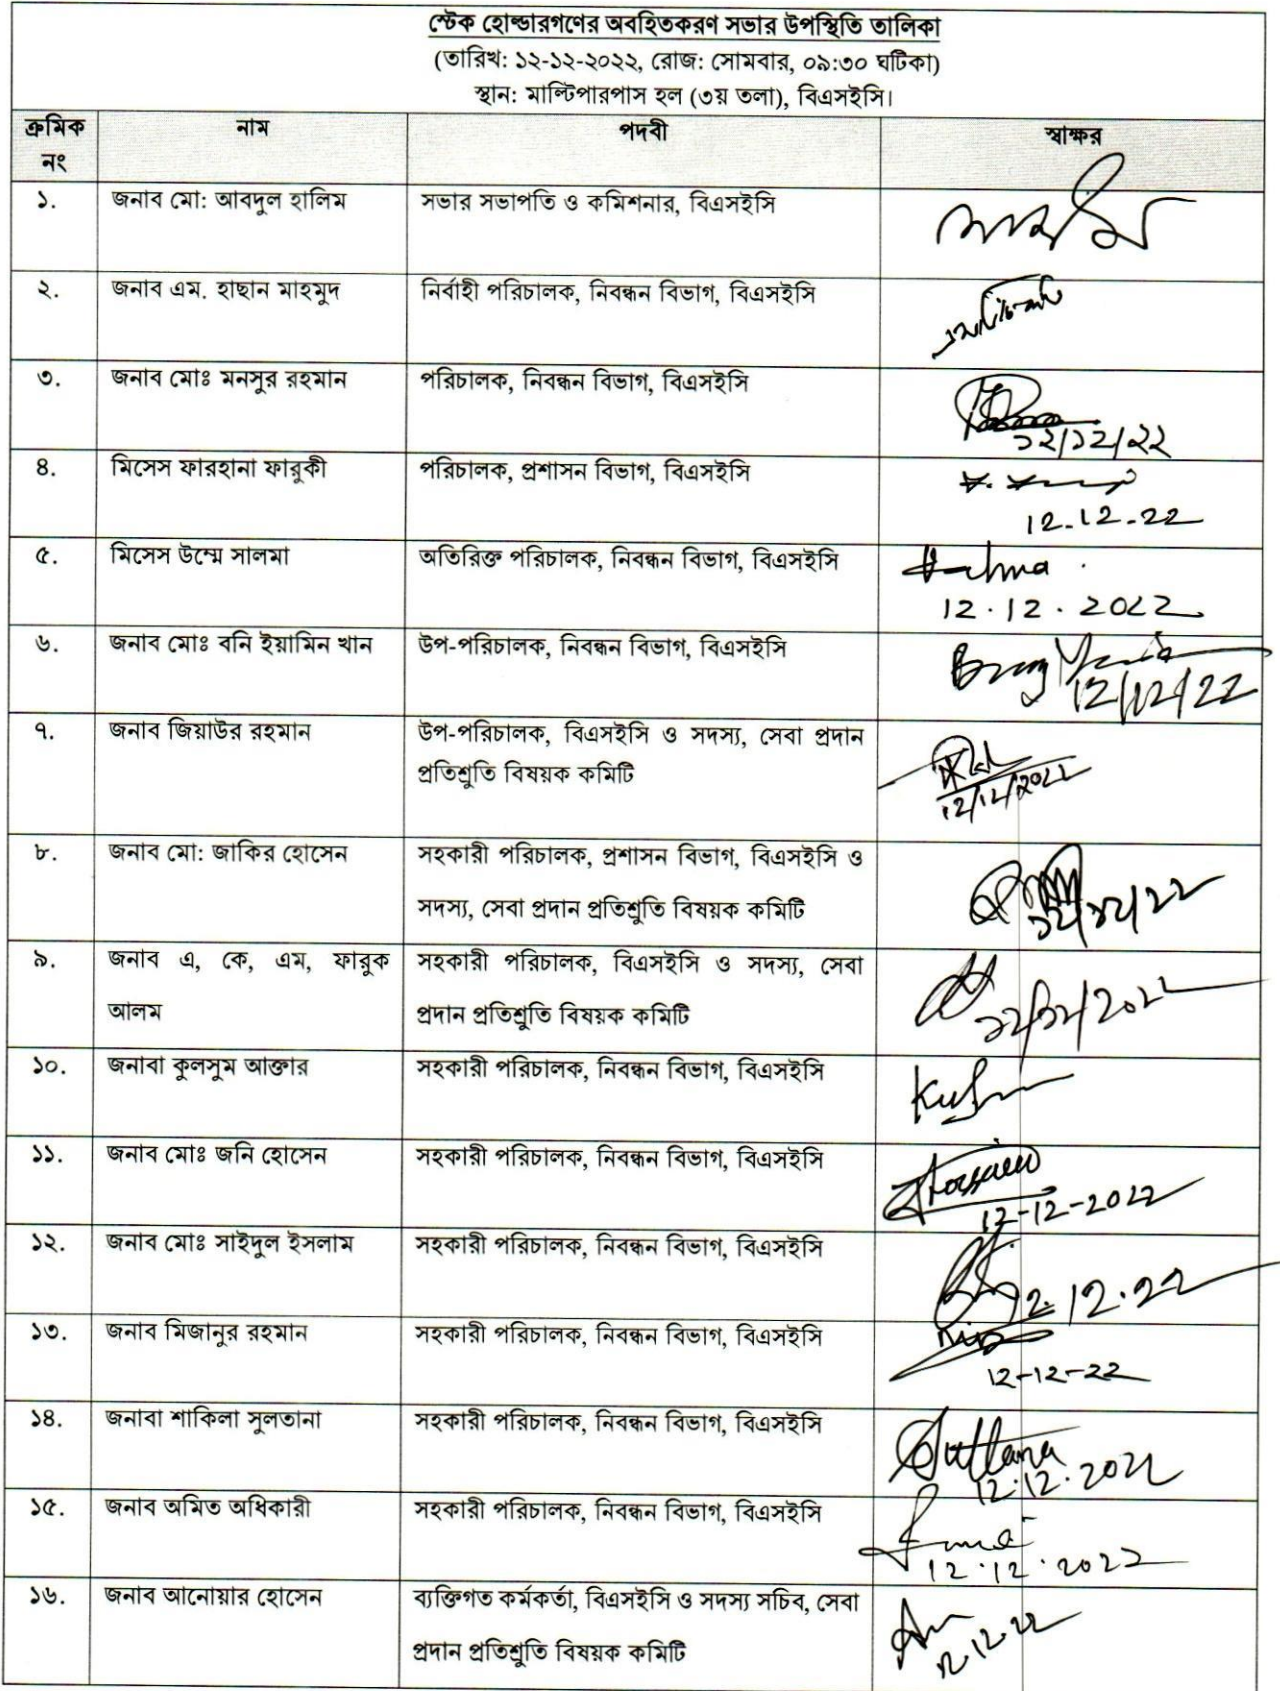 স্টেক হোল্ডারগণের অবহিতকরণ সভার উপস্থিতি তালিকা
(তারিখ: ১২-১২-২০২২, রোজ: সোমবার, ০৯:৩০ ঘটিকা)
স্থান: মাল্টিপারপাস হল (৩য় তলা), বিএসইসি।
ক্রমিক নং নাম পদবী স্বাক্ষর
১. জনাব মো: আবদুল হালিম সভার সভাপতি ও কমিশনার, বিএসইসি
২. জনাব এম. হাছান মাহমুদ নির্বাহী পরিচালক, নিবন্ধন বিভাগ, বিএসইসি
৩. জনাব মোঃ মনসুর রহমান পরিচালক, নিবন্ধন বিভাগ, বিএসইসি
১২/১২/২২
৪. মিসেস ফারহানা ফারুকী পরিচালক, প্রশাসন বিভাগ, বিএসইসি
12-12-22
৫. মিসেস উম্মে সালমা অতিরিক্ত পরিচালক, নিবন্ধন বিভাগ, বিএসইসি Salma
12.12.2022
৬. জনাব মোঃ বনি ইয়ামিন খান উপ-পরিচালক, নিবন্ধন বিভাগ, বিএসইসি
12/12/22
৭. জনাব জিয়াউর রহমান উপ-পরিচালক, বিএসইসি ও সদস্য, সেবা প্রদান
প্রতিশ্রুতি বিষয়ক কমিটি
12/12/2022
৮. জনাব মো: জাকির হোসেন সহকারী পরিচালক, প্রশাসন বিভাগ, বিএসইসি ও
সদস্য, সেবা প্রদান প্রতিশ্রুতি বিষয়ক কমিটি
৯. জনাব এ, কে, এম, ফারুক সহকারী পরিচালক, বিএসইসি ও সদস্য, সেবা
আলম প্রদান প্রতিশ্রুতি বিষয়ক কমিটি
১০. জনাবা কুলসুম আক্তার সহকারী পরিচালক, নিবন্ধন বিভাগ, বিএসইসি
১১. জনাব মোঃ জনি হোসেন সহকারী পরিচালক, নিবন্ধন বিভাগ, বিএসইসি Hossain
12-12-2022
১২. জনাব মোঃ সাইদুল ইসলাম সহকারী পরিচালক, নিবন্ধন বিভাগ, বিএসইসি
12.12.22
১৩. জনাব মিজানুর রহমান সহকারী পরিচালক, নিবন্ধন বিভাগ, বিএসইসি
12-12-22
১৪. জনাবা শাকিলা সুলতানা সহকারী পরিচালক, নিবন্ধন বিভাগ, বিএসইসি Sultana
12.12.2022
১৫. জনাব অমিত অধিকারী সহকারী পরিচালক, নিবন্ধন বিভাগ, বিএসইসি
12.12.2022
১৬. জনাব আনোয়ার হোসেন ব্যক্তিগত কর্মকর্তা, বিএসইসি ও সদস্য সচিব, সেবা
প্রদান প্রতিশ্রুতি বিষয়ক কমিটি
12.12.22